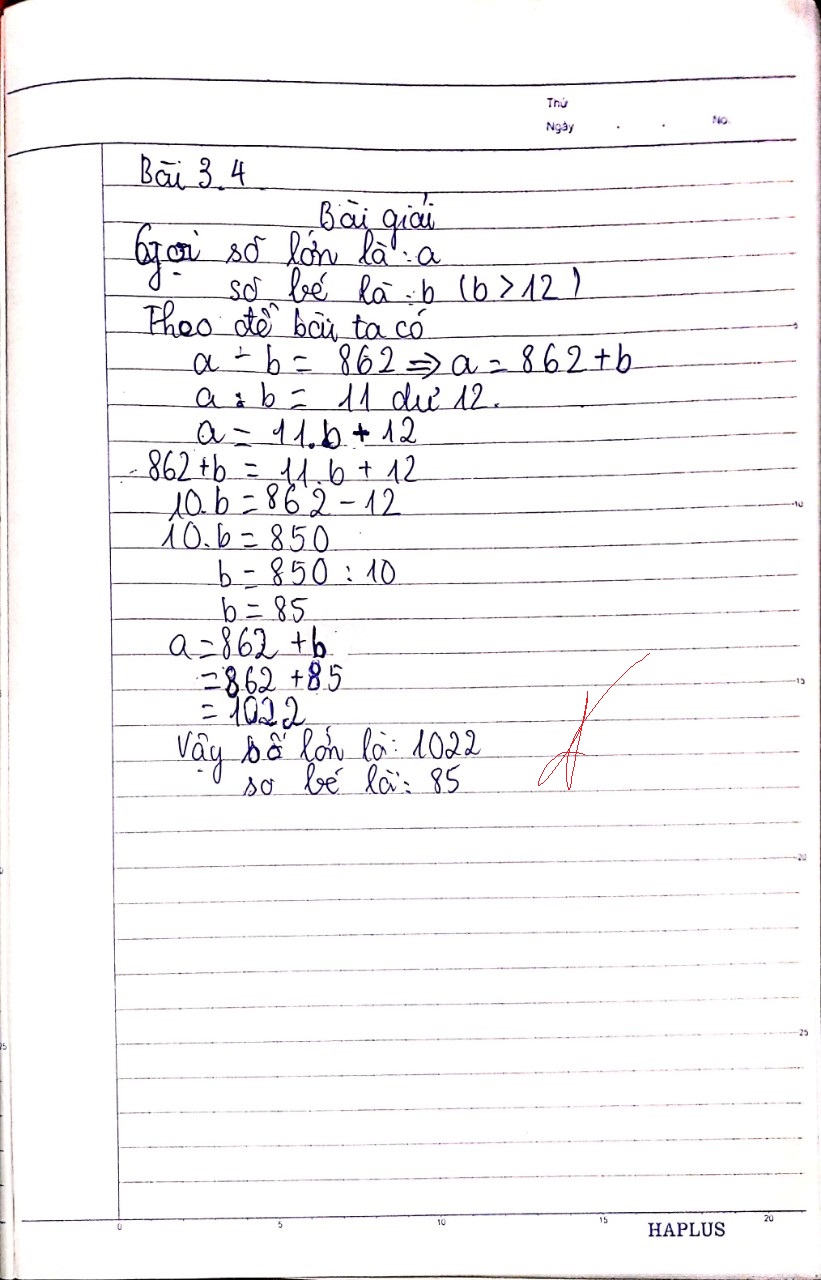 Thứ
Ngày . . No.
Bài 3.4
Bài giải
Gọi số lớn là : a
số bé là : b (b > 12)
Theo đề bài ta có
a - b = 862 => a = 862 + b
a : b = 11 dư 12.
a = 11.b + 12
862 + b = 11.b + 12
10.b = 862 - 12
10.b = 850
b = 850 : 10
b = 85
a = 862 + b
= 862 + 85
= 1022
Vậy số lớn là : 1022
sơ bé là : 85
5
10
15
20
25
0 5 10 15 20
HAPLUS